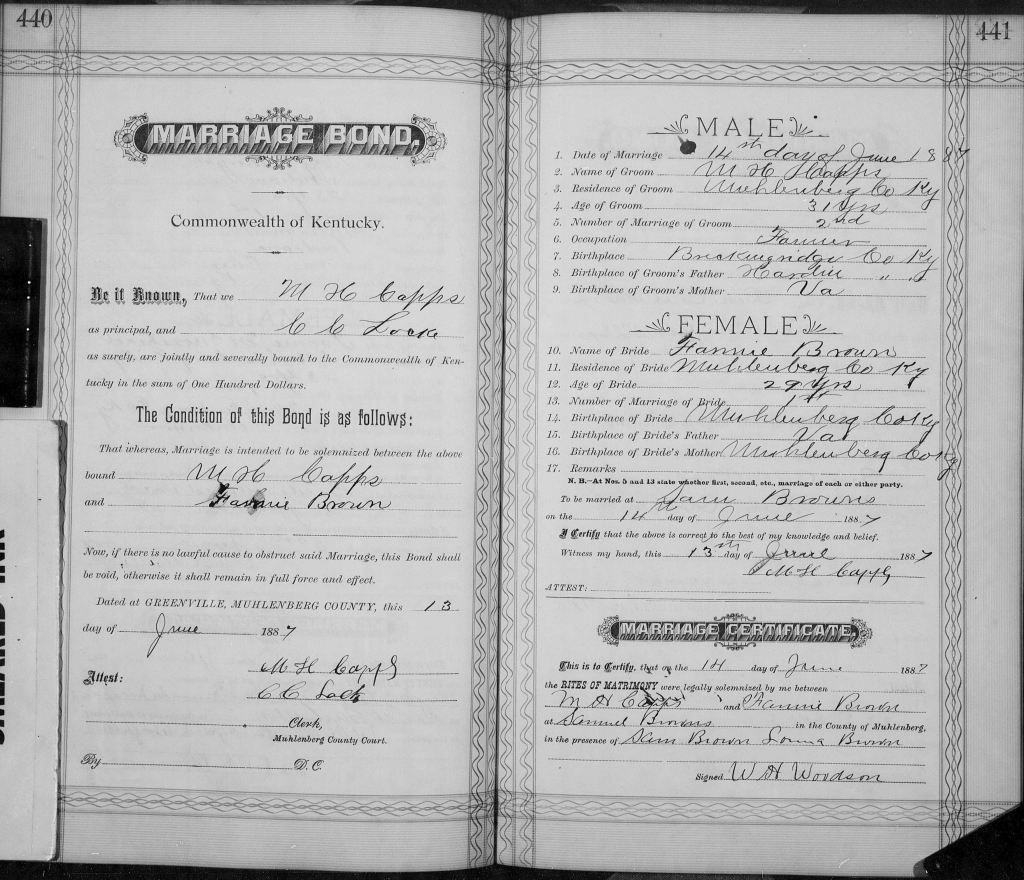 440
MARRIAGE BOND,
Commonwealth of Kentucky.
Be it Known, That we M H Capps
as principal, and C C Locke
as surety, are jointly and severally bound to the Commonwealth of Ken-
tucky in the sum of One Hundred Dollars.
The Condition of this Bond is as follows:
That whereas, Marriage is intended to be solemnized between the above
bound M H Capps
and Fannie Brown
Now, if there is no lawful cause to obstruct said Marriage, this Bond shall
be void, otherwise it shall remain in full force and effect.
Dated at GREENVILLE, MUHLENBERG COUNTY, this 13
day of June 1887
M H Capps
Attest: C C Lock
Clerk,
Muhlenberg County Court.
By D. C.
441
MALE
1. Date of Marriage 14th day of June 1887
2. Name of Groom M H Capps
3. Residence of Groom Muhlenberg Co Ky
4. Age of Groom 31 Yrs
5. Number of Marriage of Groom 2nd
6. Occupation Farmer
7. Birthplace Breckingridge Co Ky
8. Birthplace of Groom's Father Hardin " "
9. Birthplace of Groom's Mother Va
FEMALE
10. Name of Bride Fannie Brown
11. Residence of Bride Muhlenberg Co Ky
12. Age of Bride 29 Yrs
13. Number of Marriage of Bride 1st
14. Birthplace of Bride Muhlenberg Co Ky
15. Birthplace of Bride's Father Va
16. Birthplace of Bride's Mother Muhlenberg Co Ky
17. Remarks
N. B.—At Nos. 5 and 13 state whether first, second, etc., marriage of each or either party.
To be married at Sam Browns
on the 14th day of June 1887
I Certify that the above is correct to the best of my knowledge and belief.
Witness my hand, this 13th day of June 1887
M H Capps
ATTEST:
MARRIAGE CERTIFICATE.
This is to Certify, that on the 14 day of June 1887
the RITES OF MATRIMONY were legally solemnized by me between
M H Capps and Fannie Brown
at Samuel Browns in the County of Muhlenberg,
in the presence of Sam Brown Brown
Signed W H Woodson